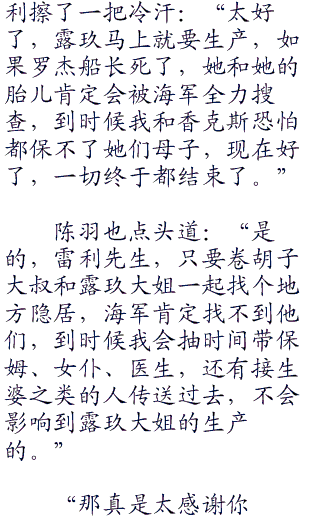 利擦了一把冷汗：“太好
了，露玖马上就要生产，如
果罗杰船长死了，她和她的
胎儿肯定会被海军全力搜
查，到时候我和香克斯恐怕
都保不了她们母子，现在好
了，一切终于都结束了。”
陈羽也点头道：“是
的，雷利先生，只要卷胡子
大叔和露玖大姐一起找个地
方隐居，海军肯定找不到他
们，到时候我会抽时间带保
姆、女仆、医生，还有接生
婆之类的人传送过去，不会
影响到露玖大姐的生产
的。”
“那真是太感谢你